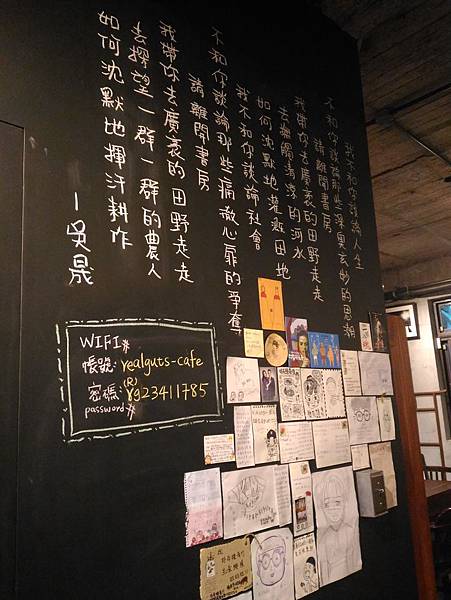 我不和你談論人生
不和你談論那些深奧玄妙的思潮
請離開書房
我帶你去廣袤的田野走走
去撫觸清涼的河水
如何沈默地灌溉田地
我不和你談論社會
不和你談論那些痛徹心扉的爭奪
請離開書房
我帶你去廣袤的田野走走
去探望一群一群的農人
如何沈默地揮汗耕作
—吳晟
WIFI#
帳號: realguts-cafe
(R)
密碼: rg23411785
password#